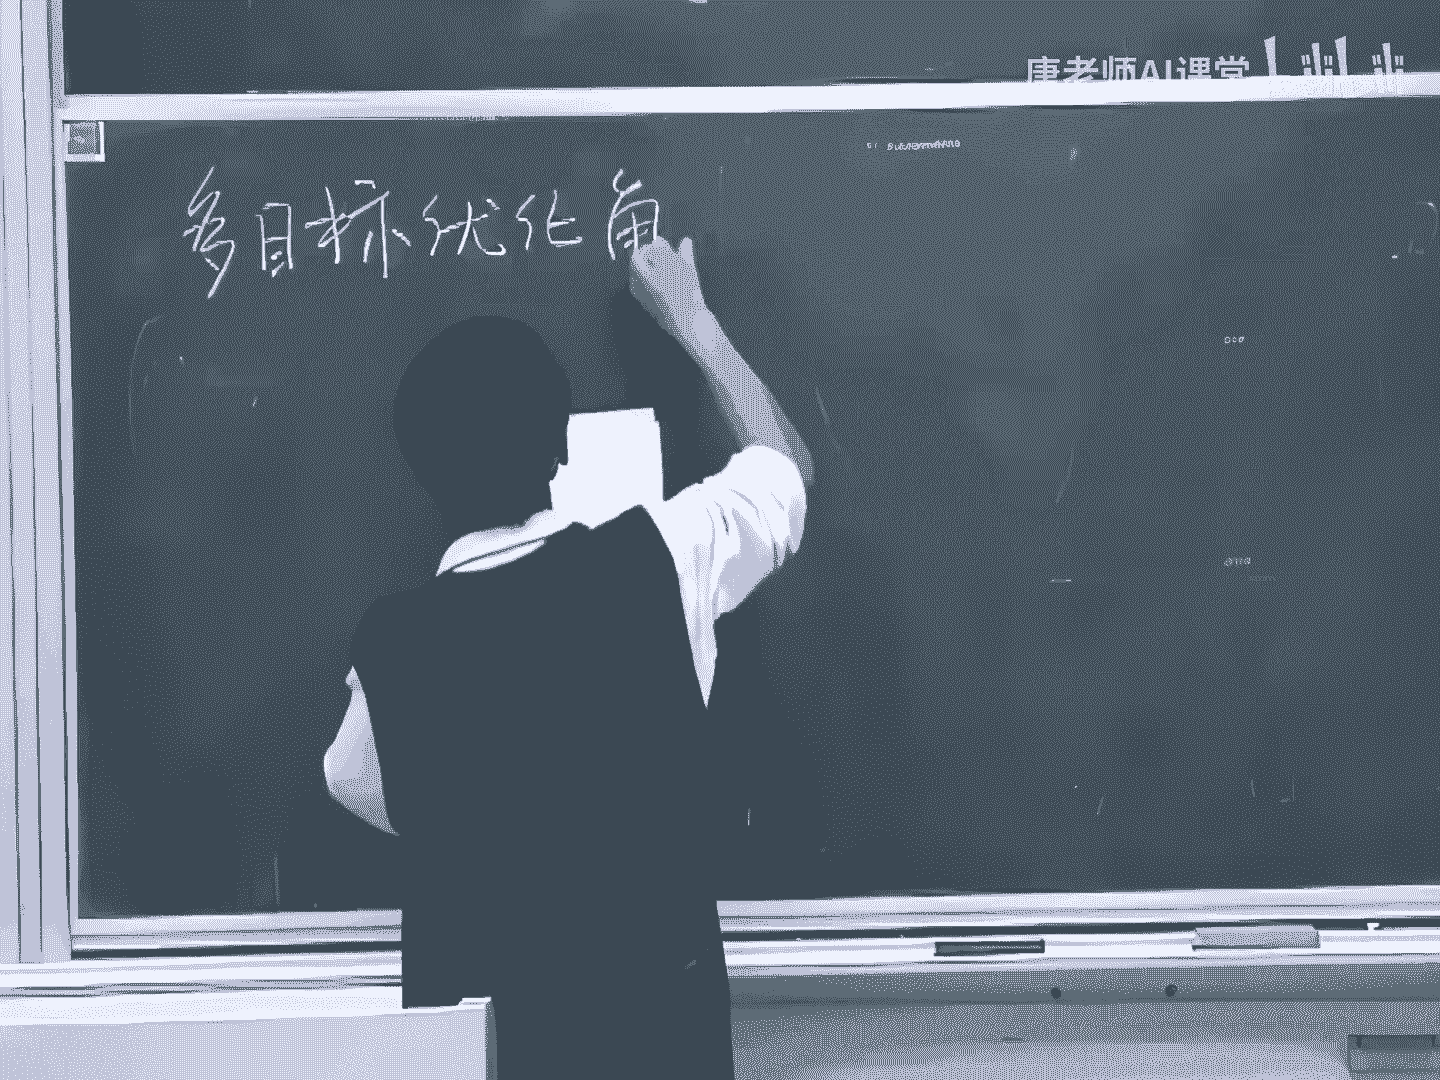 唐老师AI课堂
多目标优化角